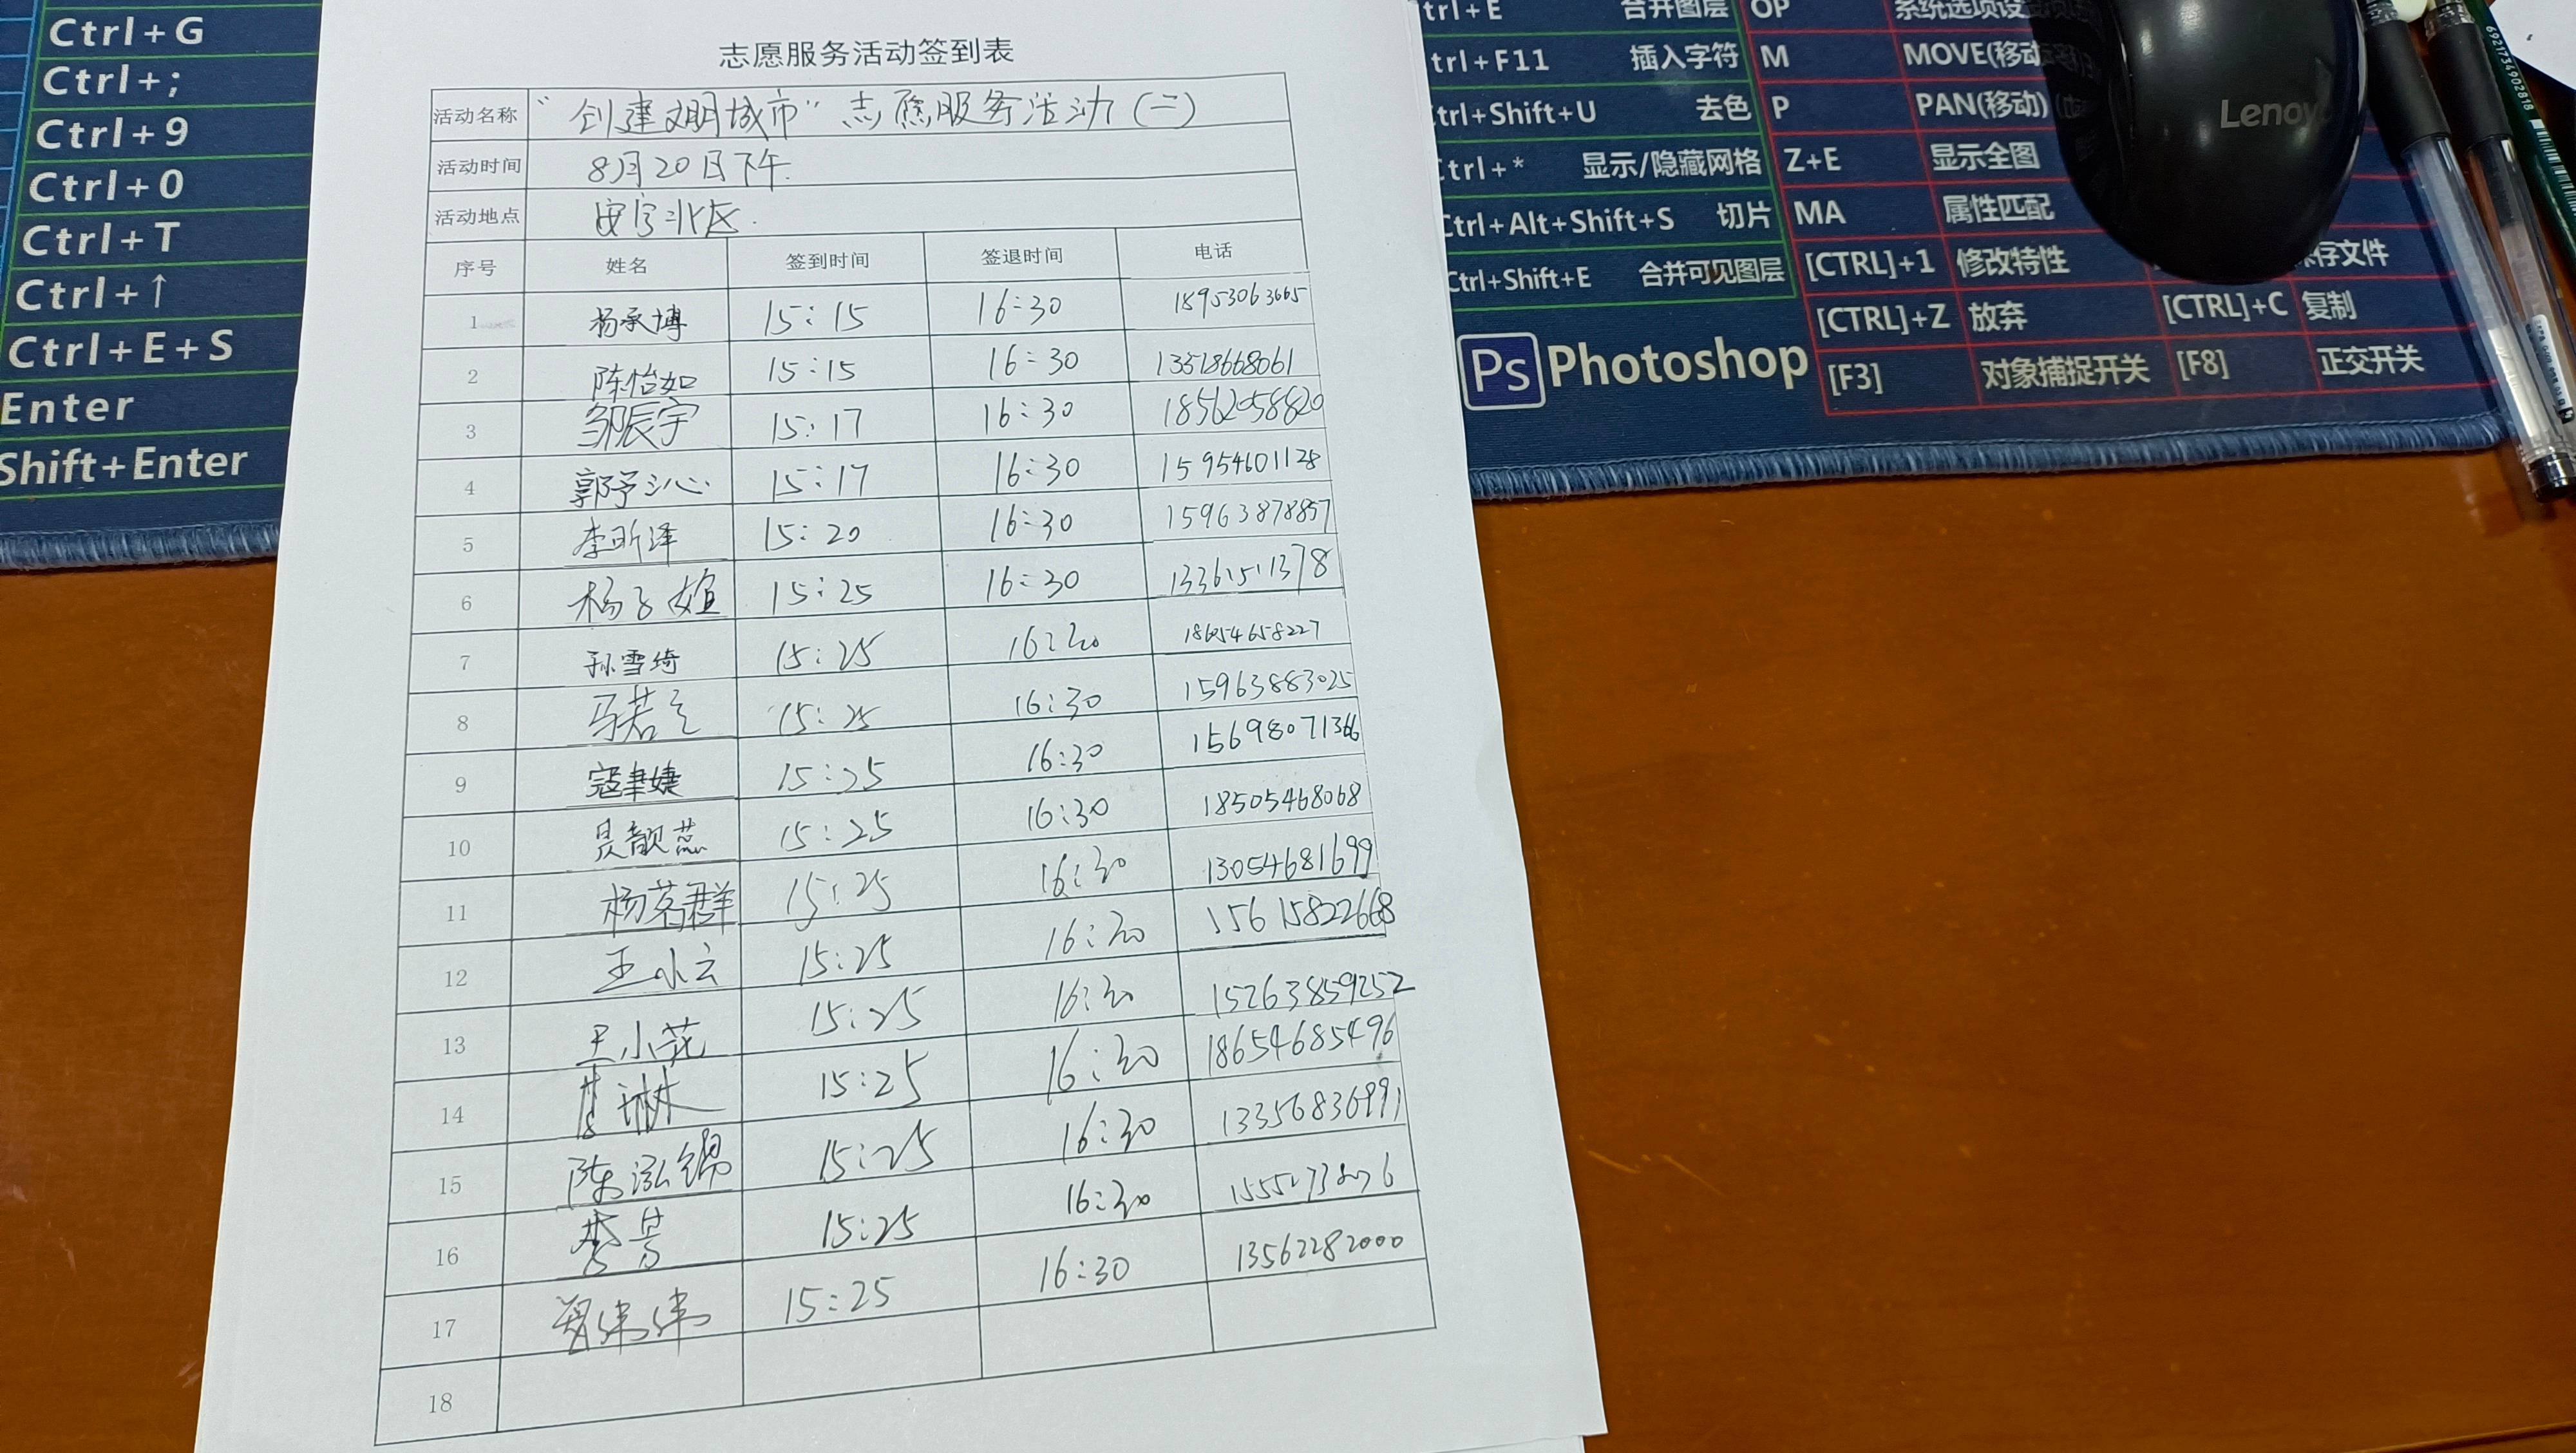 志愿服务活动签到表
活动名称 "创建文明城市"志愿服务活动(二)
活动时间 8月20日下午.
活动地点 安宁北区.
序号 姓名 签到时间 签退时间 电话
1 杨承博 15:15 16:30 18953063665
2 陈怡如 15:15 16:30 13518668061
3 邹辰宇 15:17 16:30 18562058820
4 郭予沁 15:17 16:30 15954601128
5 李昕泽 15:20 16:30 15963878857
6 杨子媗 15:25 16:30 13361511378
7 孙雪琦 15:25 16:30 18654658227
8 马若 15:25 16:30 15963883025
9 寇聿婕 15:25 16:30 15698071366
10 15:25 16:30 18505468068
11 杨茗群 15:25 16:30 13054681699
12 王小云 15:25 16:30 15615822668
13 王小花 15:25 16:30 15263859252
14 琳 15:25 16:30 18654685496
15 陈泓锡 15:25 16:30 13356836991
16 15:25 16:30
17 伟伟 15:25 16:30 13562282000
18
Ctrl+G
Ctrl+;
Ctrl+9
Ctrl+0
Ctrl+T
Ctrl+↑
Ctrl+E+S
Enter
Shift+Enter
trl+E 合并图层 OP 系统选项设
trl+F11 插入字符 M MOVE(移动
trl+Shift+U 去色 P PAN(移动)
trl+* 显示/隐藏网格 Z+E 显示全图
Ctrl+Alt+Shift+S 切片 MA 属性匹配
Ctrl+Shift+E 合并可见图层 [CTRL]+1 修改特性 存文件
[CTRL]+Z 放弃 [CTRL]+C 复制
Ps Photoshop [F3] 对象捕捉开关 [F8] 正交开关
Lenovo
6921734902818